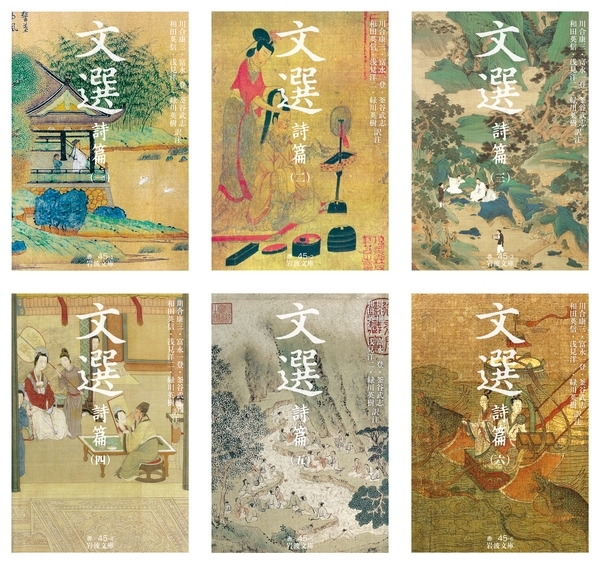 文選
詩篇
(一)
川合康三・富永一登・釜谷武志
和田英信・浅見洋二・緑川英樹 訳注
赤 45-1
岩波文庫
文選
詩篇
(二)
川合康三・富永一登・釜谷武志
和田英信・浅見洋二・緑川英樹 訳注
赤 45-2
岩波文庫
文選
詩篇
(三)
川合康三・富永一登・釜谷武志
和田英信・浅見洋二・緑川英樹 訳注
赤 45-3
岩波文庫
文選
詩篇
(四)
川合康三・富永一登・釜谷武志
和田英信・浅見洋二・緑川英樹 訳注
赤 45
岩波文庫
文選
詩篇
(五)
川合康三・富永一登・釜谷武志
和田英信・浅見洋二・緑川英樹 訳注
赤 45
岩波文庫
文選
詩篇
(六)
川合康三・富永一登・釜谷武志
和田英信・浅見洋二・緑川英樹 訳注
赤 45
岩波文庫